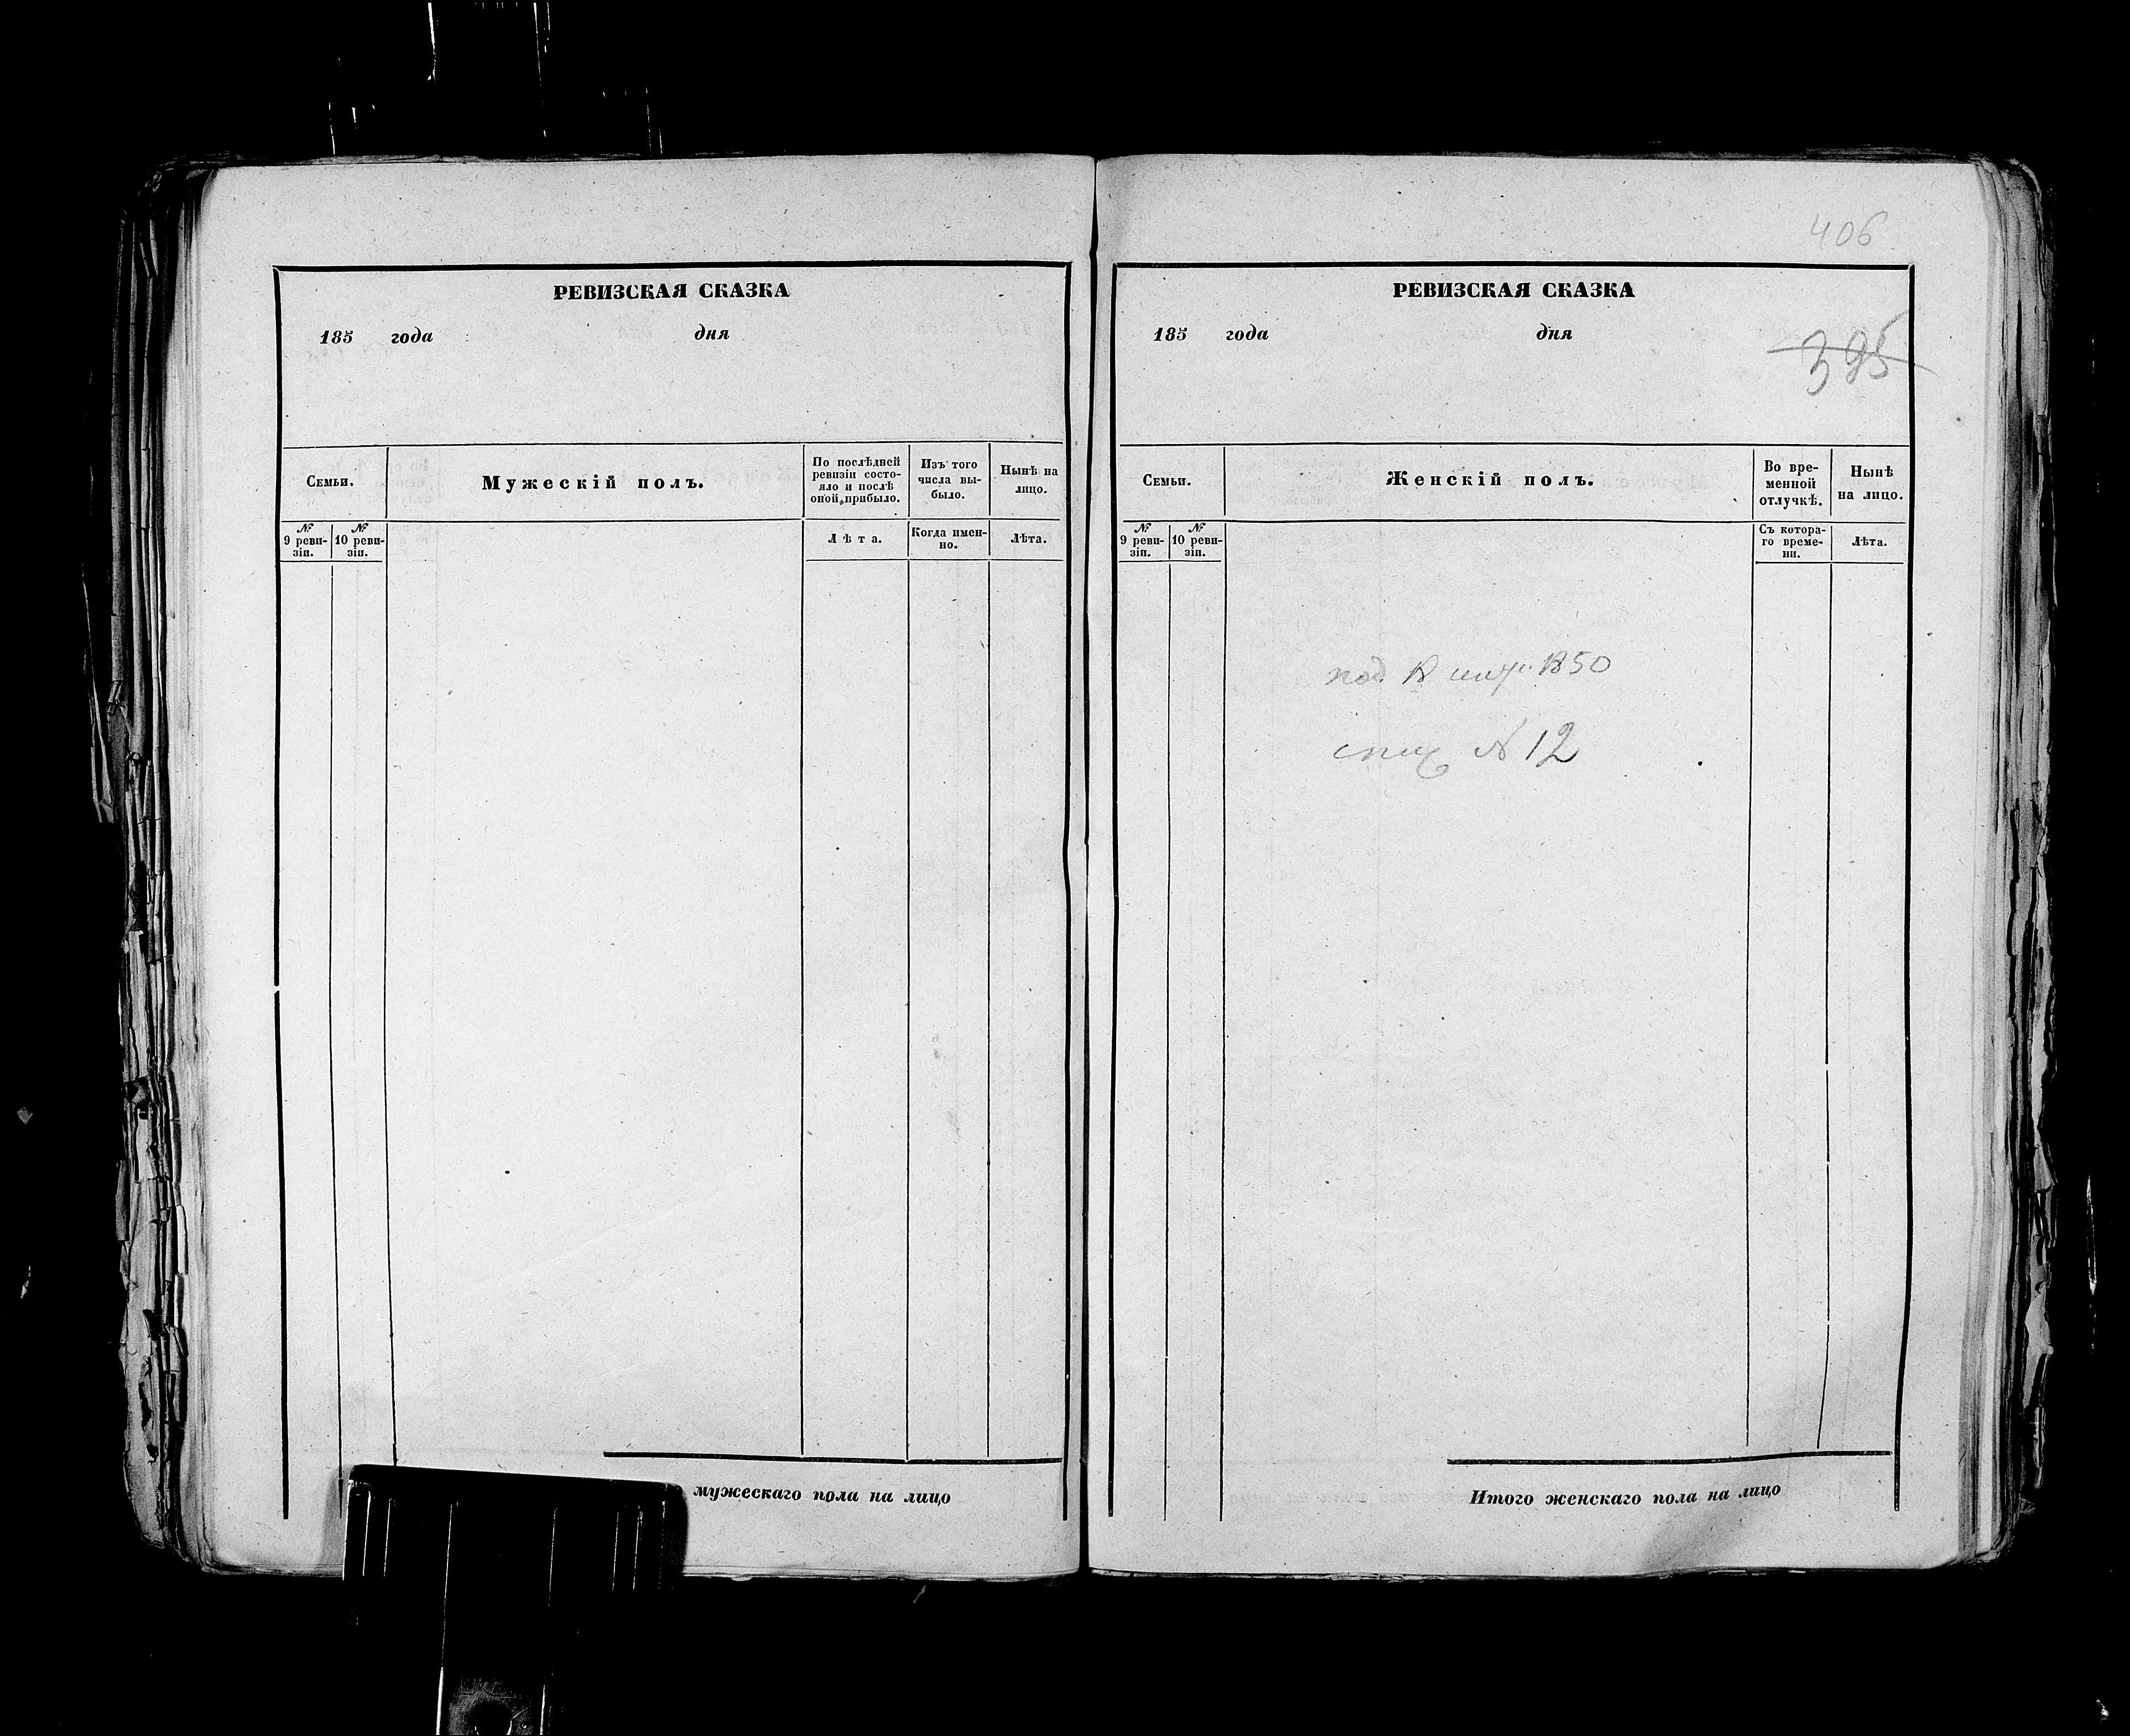 РЕВИЗСКАЯ СКАЗКА
185 года дня
Семьи.
Мужескій полъ.
По послѣдней
ревизіи состо-
яло и послѣ
оной прибыло.
Изъ того
числа вы-
было.
Нынѣ на
лицо.
№
9 реви-
зіи.
№
10 реви-
зіи.
Лѣта.
Когда имен-
но.
Лѣта.
мужескаго пола на лицо
406
РЕВИЗСКАЯ СКАЗКА
185 года дня
395
Семьи.
Женскій полъ.
Во вре-
менной
отлучкѣ.
Нынѣ
на лицо.
№
9 реви-
зіи.
№
10 реви-
зіи.
Съ котора-
го време-
ни.
Лѣта.
под. 1850
N 12
Итого женскаго пола на лицо